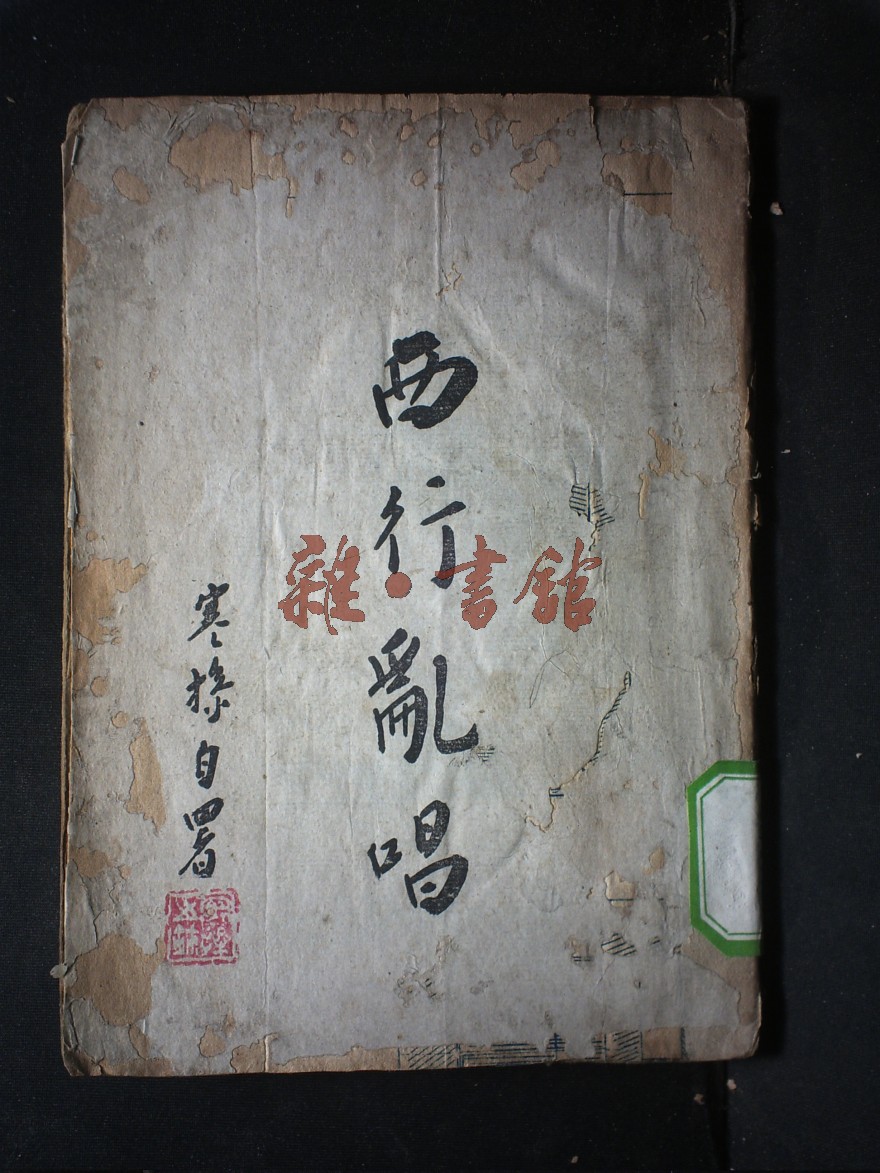 西行亂唱
寒操自署
雜·書館